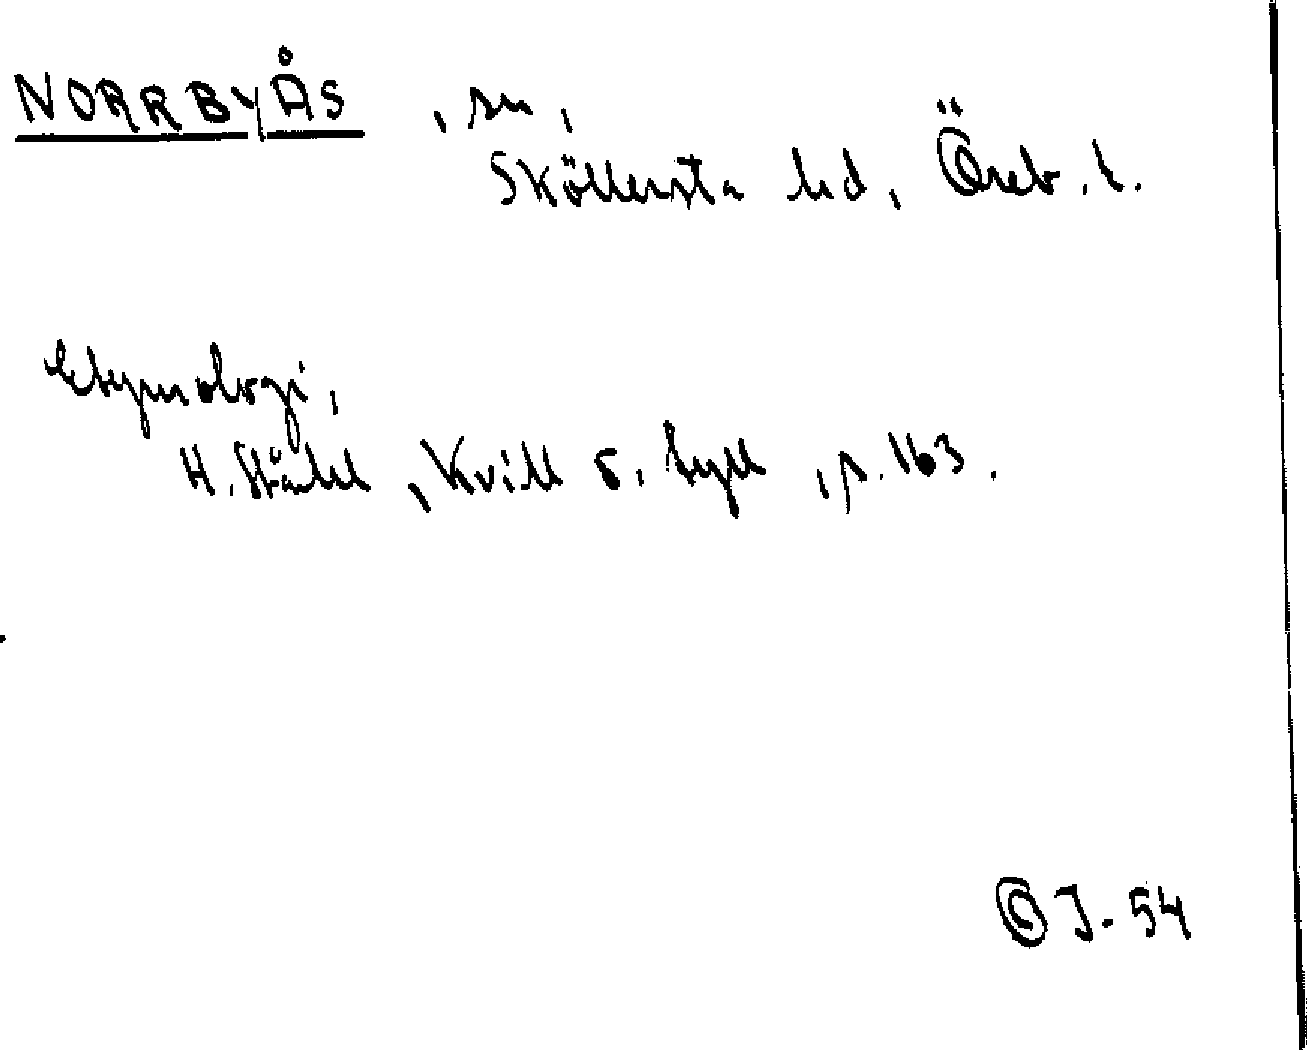 NORRBYÅS , sn,
Sköllersta hd, Öreb. l.
Etymologi,
H. Ståhl, Kvill o. tyll, p. 163.
ÖJ. 54